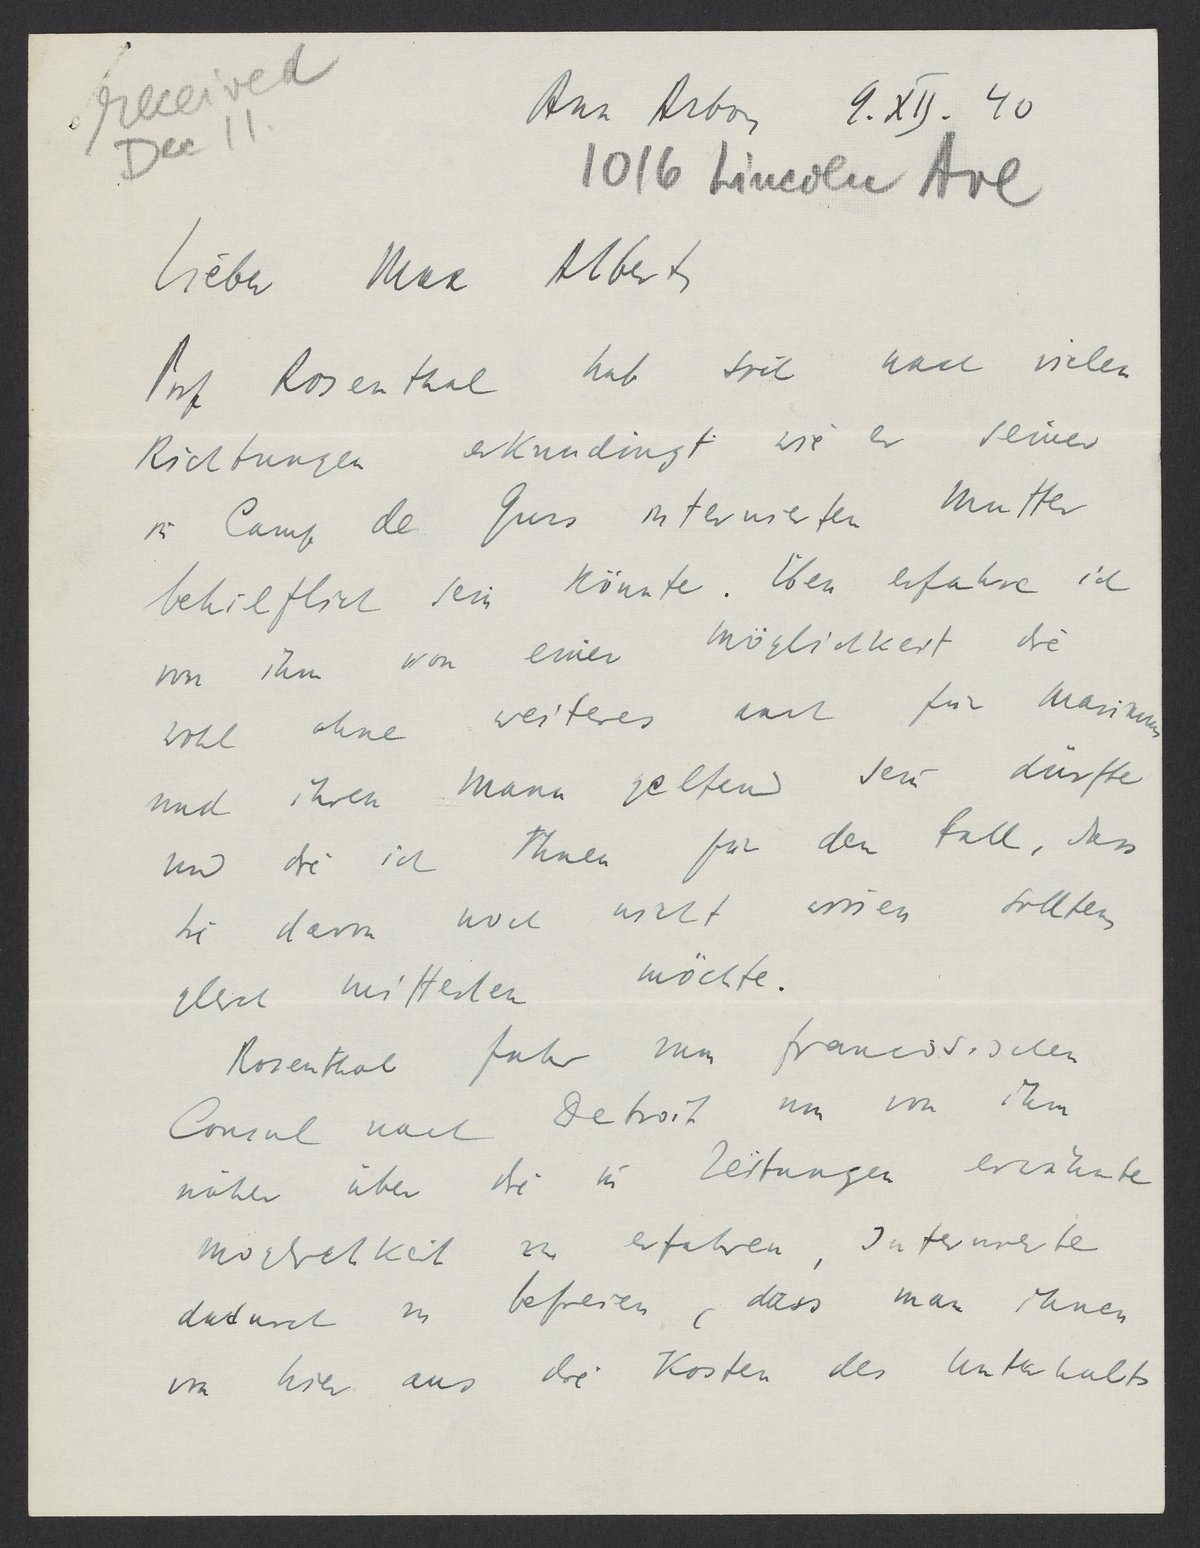 received
Dec 11.
Ann Arbor, 9. XII. 40
1016 Lincoln Ave
Lieber Max Albert,
Prof Rosenthal hat sich nach vielen
Richtungen erkundingt wie er seiner
in Camp de Gurs internierten Mutter
behilflich sein könnte. Eben erfahre ich
von ihm von einer Möglichkeit die
wohl ohne weiteres auch für
und ihren Mann geltend sein dürfte
und die ich Ihnen für den Fall, dass
Sie davon noch nicht wissen sollten,
gleich mitteilen möchte.
Rosenthal fuhr zum französischen
Consul nach Detroit um von ihm
näher über die in Zeitungen erwähnte
Möglichkeit zu erfahren, Internierte
dadurch zu befreien, dass man ihnen
von hier aus die Kosten des Unterhalts